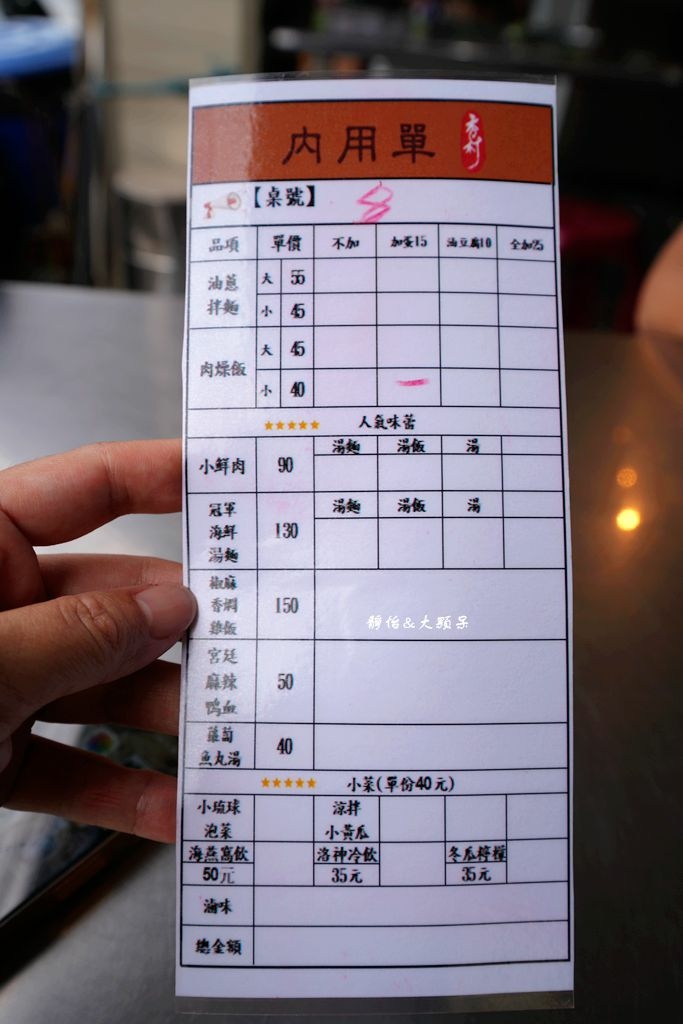 內用單 杏村
【桌號】 8
品項 單價 不加 加蛋15 油豆腐10 全加25
油蔥 大 55
拌麵 小 45
肉燥飯 大 45
小 40
★★★★★ 人氣味蕾
小鮮肉 90 湯麵 湯飯 湯
冠軍 湯麵 湯飯 湯
海鮮 130
湯麵
椒麻
香燜 150
雞飯
靜怡&大顆呆
宮廷
麻辣 50
鴨血
蘿蔔 40
魚丸湯
★★★★★ 小菜(單份40元)
小琉球 涼拌
泡菜 小黃瓜
海燕窩飲 洛神冷飲 冬瓜檸檬
50元 35元 35元
滷味
總金額